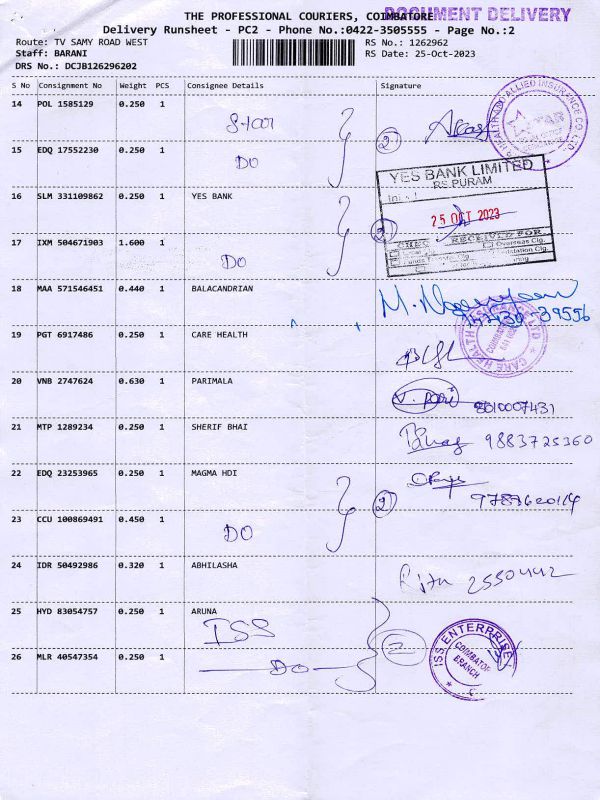 THE PROFESSIONAL COURIERS, COIMBATORE
DOCUMENT DELIVERY
Delivery Runsheet - PC2 - Phone No.:0422-3505555 - Page No.:2
Route: TV SAMY ROAD WEST
RS No.: 1262962
Staff: BARANI
RS Date: 25-Oct-2023
DRS No.: DCJB126296202
S No Consignment No Weight PCS Consignee Details Signature
14 POL 1585129 0.250 1 Star
2
15 EDQ 17552230 0.250 1 DO
YES BANK LIMITED
RS PURAM
16 SLM 331109862 0.250 1 YES BANK
25 OCT 2023
2
RECEIVED FOR
Overseas Clg.
17 IXM 504671903 1.600 1 DO
18 MAA 571546451 0.440 1 BALACANDRIAN
CARE HEALTH INSURANCE LTD
19 PGT 6917486 0.250 1 CARE HEALTH
20 VNB 2747624 0.630 1 PARIMALA
8610007431
21 MTP 1289234 0.250 1 SHERIF BHAI
9883725360
22 EDQ 23253965 0.250 1 MAGMA HDI
2
23 CCU 100869491 0.450 1 DO
24 IDR 50492986 0.320 1 ABHILASHA
2550442
25 HYD 83054757 0.250 1 ARUNA
ISS
2
ISS ENTERPRISE
COIMBATORE
BRANCH
26 MLR 40547354 0.250 1 DO